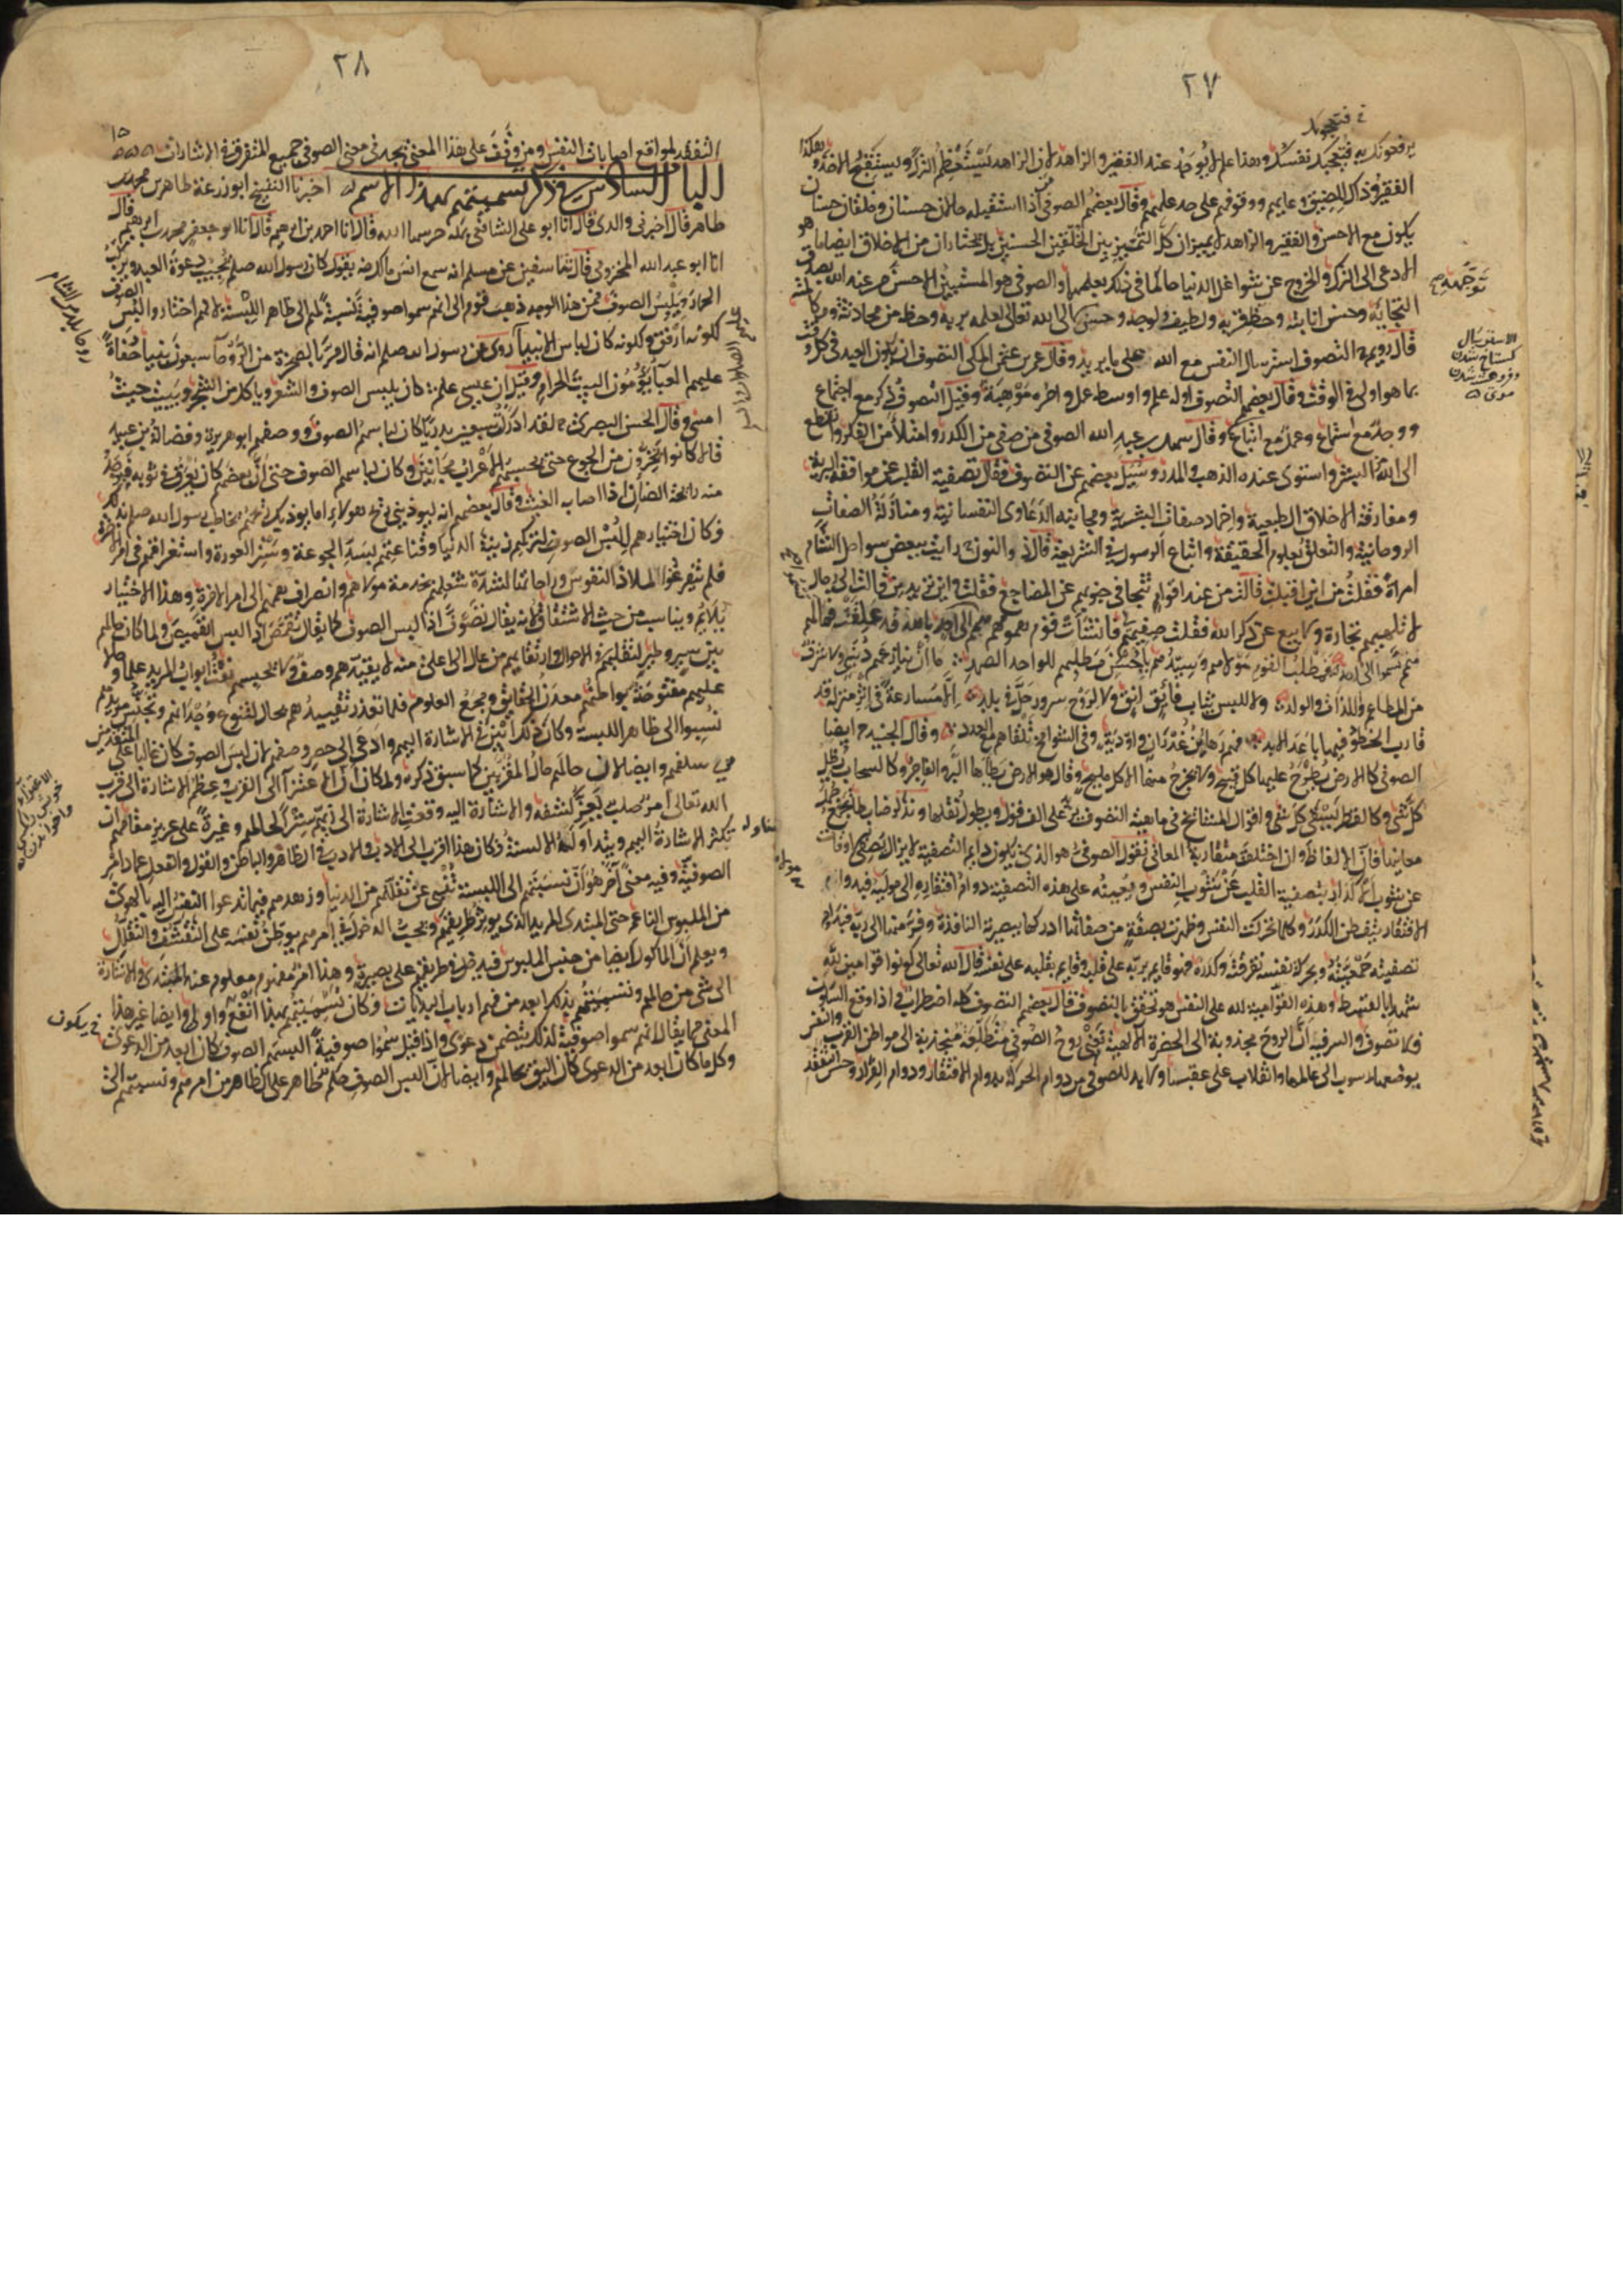 ٢٧
يرفعونك به فتعجبك نفسك وهذا علم لا يوجد عند الفقير والزاهد لان الزاهد يستعظم الترك ويستقبح الاخذ وهكذا
الفقير وذلك لضيق وعايهم ووقوفهم على حد علمهم وقال بعضهم الصوفي من اذا استقبله حالان حسنان وخلقان حسنان
يكون مع الاحسن والفقير والزاهد لا يميزان كل التمييز بين الخلقين الحسنين بل يختاران من الاخلاق ايضا ما هو
الادعى الى الترك والخروج عن شواغل الدنيا حاكمان في ذلك بعلمهما والصوفي هو المستبين الاحسن من عند الله بصدق
التجائه وحسن انابته وحظ قربه ولطيف ولوجه وخروجه الى الله تعالى لعلمه بربه وحظه من محادثته ومكالمته
قال رويم التصوف استرسال النفس مع الله على ما يريد وقال عمرو بن عثمن المكي التصوف ان يكون العبد في كل وقت
بما هو اولى في الوقت وقال بعضهم التصوف اوله علم واوسطه عمل واخره موهبة وقيل التصوف ذكر مع اجتماع
ووجد مع استماع وعمل مع اتباع وقال سهل بن عبد الله الصوفي من صفى من الكدر وامتلأ من الفكر وانقطع
الى الله من البشر واستوى عنده الذهب والمدر وسئل بعضهم عن التصوف فقال تصفية القلب عن موافقة البرية
ومفارقة الاخلاق الطبيعية واخماد صفات البشرية ومجانبة الدعاوى النفسانية ومنازلة الصفات
الروحانية والتعلق بعلوم الحقيقة واتباع الرسول في الشريعة قال ذو النون رايت ببعض سواحل الشام
امراة فقلت من اين اقبلت قالت من عند اقوام تتجافى جنوبهم عن المضاجع فقلت واين تريدين قالت الى رجال
لا تلهيهم تجارة ولا بيع عن ذكر الله فقلت صفيهم فانشأت قوم همومهم بالله قد علقت فما لهم
همم تسموا الى احد فمطلب القوم مولاهم وسيدهم يا حسن مطلبهم للواحد الصمد ما ان ينازعهم دنيا ولا شرف
من المطاعم واللذات والولد ولا للبس ثياب فائق انق ولا لروح سرور حل في بلد الا مسارعة في اثر منزلة قد
قارب الخطو فيها باعد الابد فهم رهاين غدران واودية وفي الشوامخ تلقاهم مع العدد وقال الجنيد ايضا
الصوفي كالارض يطرح عليها كل قبيح ولا يخرج منها الا كل مليح وقال هو كالارض يطأها البر والفاجر وكالسحاب يظل
كل شئ وكالقطر يسقي كل شئ واقوال المشائخ في ماهية التصوف تزيد على الف قول ويطول نقلها ونذكر ضابطا يجمع جمل
معانيها فان الالفاظ وان اختلفت متقاربة المعاني نقول الصوفي هو الذي يكون دايم التصفية لا يزال يصفي اوقاته
عن شوب الاكدار بتصفية القلب عن شوب النفس ويعينه على هذه التصفية دوام افتقاره الى مولاه فبدوام
الافتقار يتفطن للكدر وكلما تحركت النفس وظهرت بصفة من صفاتها ادركها ببصيرته النافذة وفر منها الى ربه فبدوام
تصفيته جمعيته وبحركة نفسه تفرقته وكدره فهو قايم بربه على قلبه وقايم بقلبه على نفسه قال الله تعالى كونوا قوامين لله
شهداء بالقسط وهذه القوامية لله على النفس هو تحقق بالتصوف قال بعضهم التصوف كله اضطراب فاذا وقع السكون
فلا تصوف والسر فيه ان الروح مجذوبة الى الحضرة الالهية يعني روح الصوفي متطلعة منجذبة الى مواطن القرب وللنفس
بوضعها رسوب الى عالمها وانقلاب على عقبها ولا بد للصوفي من دوام الحركة بدوام الافتقار ودوام الفرار وحسن التفقد
الاسترسال
٢٨
التفقد لمواقع اصابات النفس ومن وقف على هذا المعنى يجد في معنى الصوفي جميع المتفرق في الاشارات
الباب السادس في ذكر تسميتهم بهذا الاسم اخبرنا الشيخ ابو زرعة طاهر بن محمد بن
طاهر قال اخبرني والدي قال انا ابو علي الشافعي بمكة حرسها الله قال انا احمد بن ابرهيم قال انا ابو جعفر محمد بن ابرهيم قال
انا ابو عبد الله المخزومي قال ثنا سفين عن مسلم انه سمع انس بن مالك رضه يقول كان رسول الله صلعم يجيب دعوة العبد ويركب
الحمار ويلبس الصوف فمن هذا الوجه ذهب قوم الى انهم سموا صوفية نسبة لهم الى ظاهر اللبسة لانهم اختاروا لبس الصوف
لكونه ارفق ولكونه كان لباس الانبيا روى عن رسول الله صلعم انه قال مر بالصخرة من الروحا سبعون نبيا حفاة
عليهم العبا يؤمون البيت الحرام وقيل ان عيسى علم كان يلبس الصوف والشعر وياكل من الشجر ويبيت حيث
امسى وقال الحسن البصري لقد ادركت سبعين بدريا كان لباسهم الصوف ووصفهم ابو هريرة وفضالة بن عبيد
قالا كانوا يخرون من الجوع حتى يحسبهم الاعراب مجانين وكان لباسهم الصوف حتى ان بعضهم كان يعرق في ثوبه فيوجد
منه رائحة الضان اذا اصاب الغيث وقال بعضهم انه ليوذيني ريح هولاء اما يوذيك ريحهم يخاطب رسول الله صلعم بذلك
فكان اختيارهم للبس الصوف لتركهم زينة الدنيا وقناعتهم بسد الجوعة وستر العورة واستغراقهم في امر الاخرة
فلم يتفرغوا لملاذ النفوس وراحاتها لشدة شغلهم بخدمة مولاهم وانصراف همهم الى امر الاخرة وهذا الاختيار
يلايم ويناسب من حيث الاشتقاق لانه يقال تصوف اذا لبس الصوف كما يقال تقمص اذا لبس القميص ولما كان حالهم
بين سير وطير لتقلبهم في الاحوال وارتقايهم من عال الى اعلى منه لا يقيدهم وصف ولا يحبسهم نعت وابواب المزيد علما وحالا
عليهم مفتوحة بواطنهم معدن الحقايق ومجمع العلوم فلما تعذر تقييدهم بحال لتنوع وجدانهم وتجنس مزيدهم
نسبوا الى ظاهر اللبسة وكان ذلك ابين في الاشارة اليهم وادعى الى حصر وصفهم لان لبس الصوف كان غالبا على المتقدمين
من سلفهم وايضا لان حالهم حال المقربين كما سبق ذكره ولما كان الاعتزا الى القرب وعظم الاشارة الى قرب
الله تعالى امر صعب يعز كشفه والاشارة اليه وقعت الاشارة الى زيهم سترا لحالهم وغيرة على عزيز مقامهم ان
تكثر الاشارة اليهم ويتداوله الالسنة فكان هذا اقرب الى الادب والادب في الظاهر والباطن والقول والفعل عماد امر
الصوفية وفيه معنى آخر هو ان نسبتهم الى اللبسة تنبئ عن تقللهم من الدنيا وزهدهم فيما تدعوا النفس اليه بالهوى
من الملبوس الناعم حتى المبتدى المريد الذي يوثر طريقهم ويحب الدخول في امرهم يوطن نفسه على التقشف والتقلل
ويعلم ان الماكول ايضا من جنس الملبوس فيدخل في طريقهم على بصيرة وهذا امر مفهوم معلوم عند المبتدى والاشارة
الى شئ من حالهم وتسميتهم بذلك ابعد من فهم ارباب البدايات فكان تسميتهم بهذا انفع واولى وايضا غير هذا
المعنى مما يقال انهم سموا صوفية لذلك يتضمن دعوى واذا قيل سموا صوفية للبسهم الصوف كان ابعد من الدعوى
وكل ما كان ابعد من الدعوى كان اليق بحالهم وايضا لان لبس الصوف حكم ظاهر على الظاهر من امرهم ونسبتهم الى